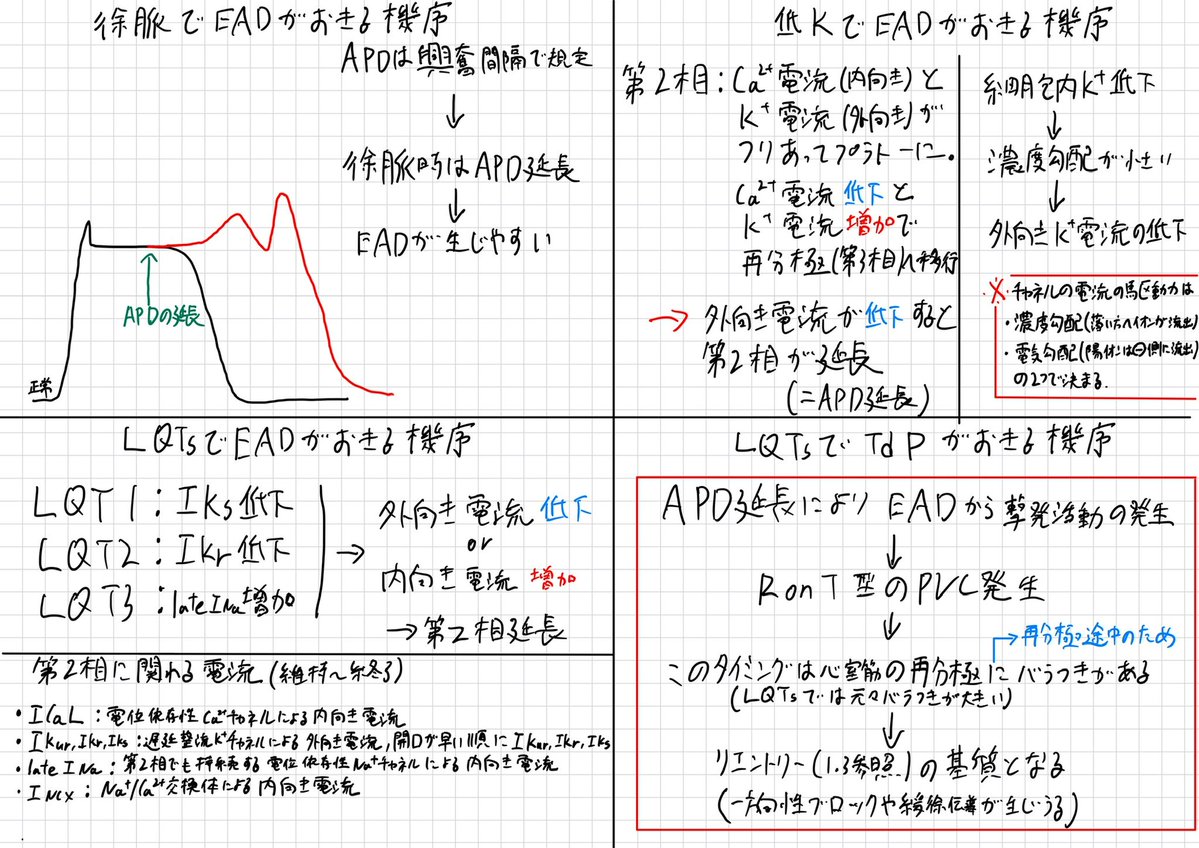 徐脈でEADがおきる機序
APDは興奮間隔で規定
↓
徐脈時はAPD延長
↓
EADが生じやすい
APDの延長
正常
低KでEADがおきる機序
第2相：Ca²⁺電流(内向き)と
K⁺電流(外向き)が
つりあってプラトーに。
Ca²⁺電流低下と
K⁺電流増加で
再分極(第3相)へ移行
→外向き電流が低下すると
第2相が延長
(=APD延長)
細胞内K⁺低下
↓
濃度勾配が小さい
↓
外向きK⁺電流の低下
※チャネルの電流の駆動力は
・濃度勾配(薄い方へイオンが流出)
・電気勾配(陽イオンは⊖側に流出)
の2つで決まる.
LQTsでEADがおきる機序
LQT1：IKs低下
LQT2：IKr低下
LQT3：late INa増加
→
外向き電流低下
or
内向き電流増加
→第2相延長
第2相に関わる電流(維持〜終了)
・ICaL：電位依存性Ca²⁺チャネルによる内向き電流
・IKur,IKr,IKs：遅延整流K⁺チャネルによる外向き電流,開口が早い順にIKur,IKr,IKs
・late INa：第2相でも持続する電位依存性Na⁺チャネルによる内向き電流
・INCX：Na⁺/Ca²⁺交換体による内向き電流
LQTsでTdPがおきる機序
APD延長によりEADから撃発活動の発生
↓
RonT型のPVC発生
↓
→再分極途中のため
このタイミングは心室筋の再分極にバラつきがある
(LQTsでは元々バラつきが大きい)
↓
リエントリー(1.3参照)の基質となる
(一方向性ブロックや緩徐伝導が生じうる)